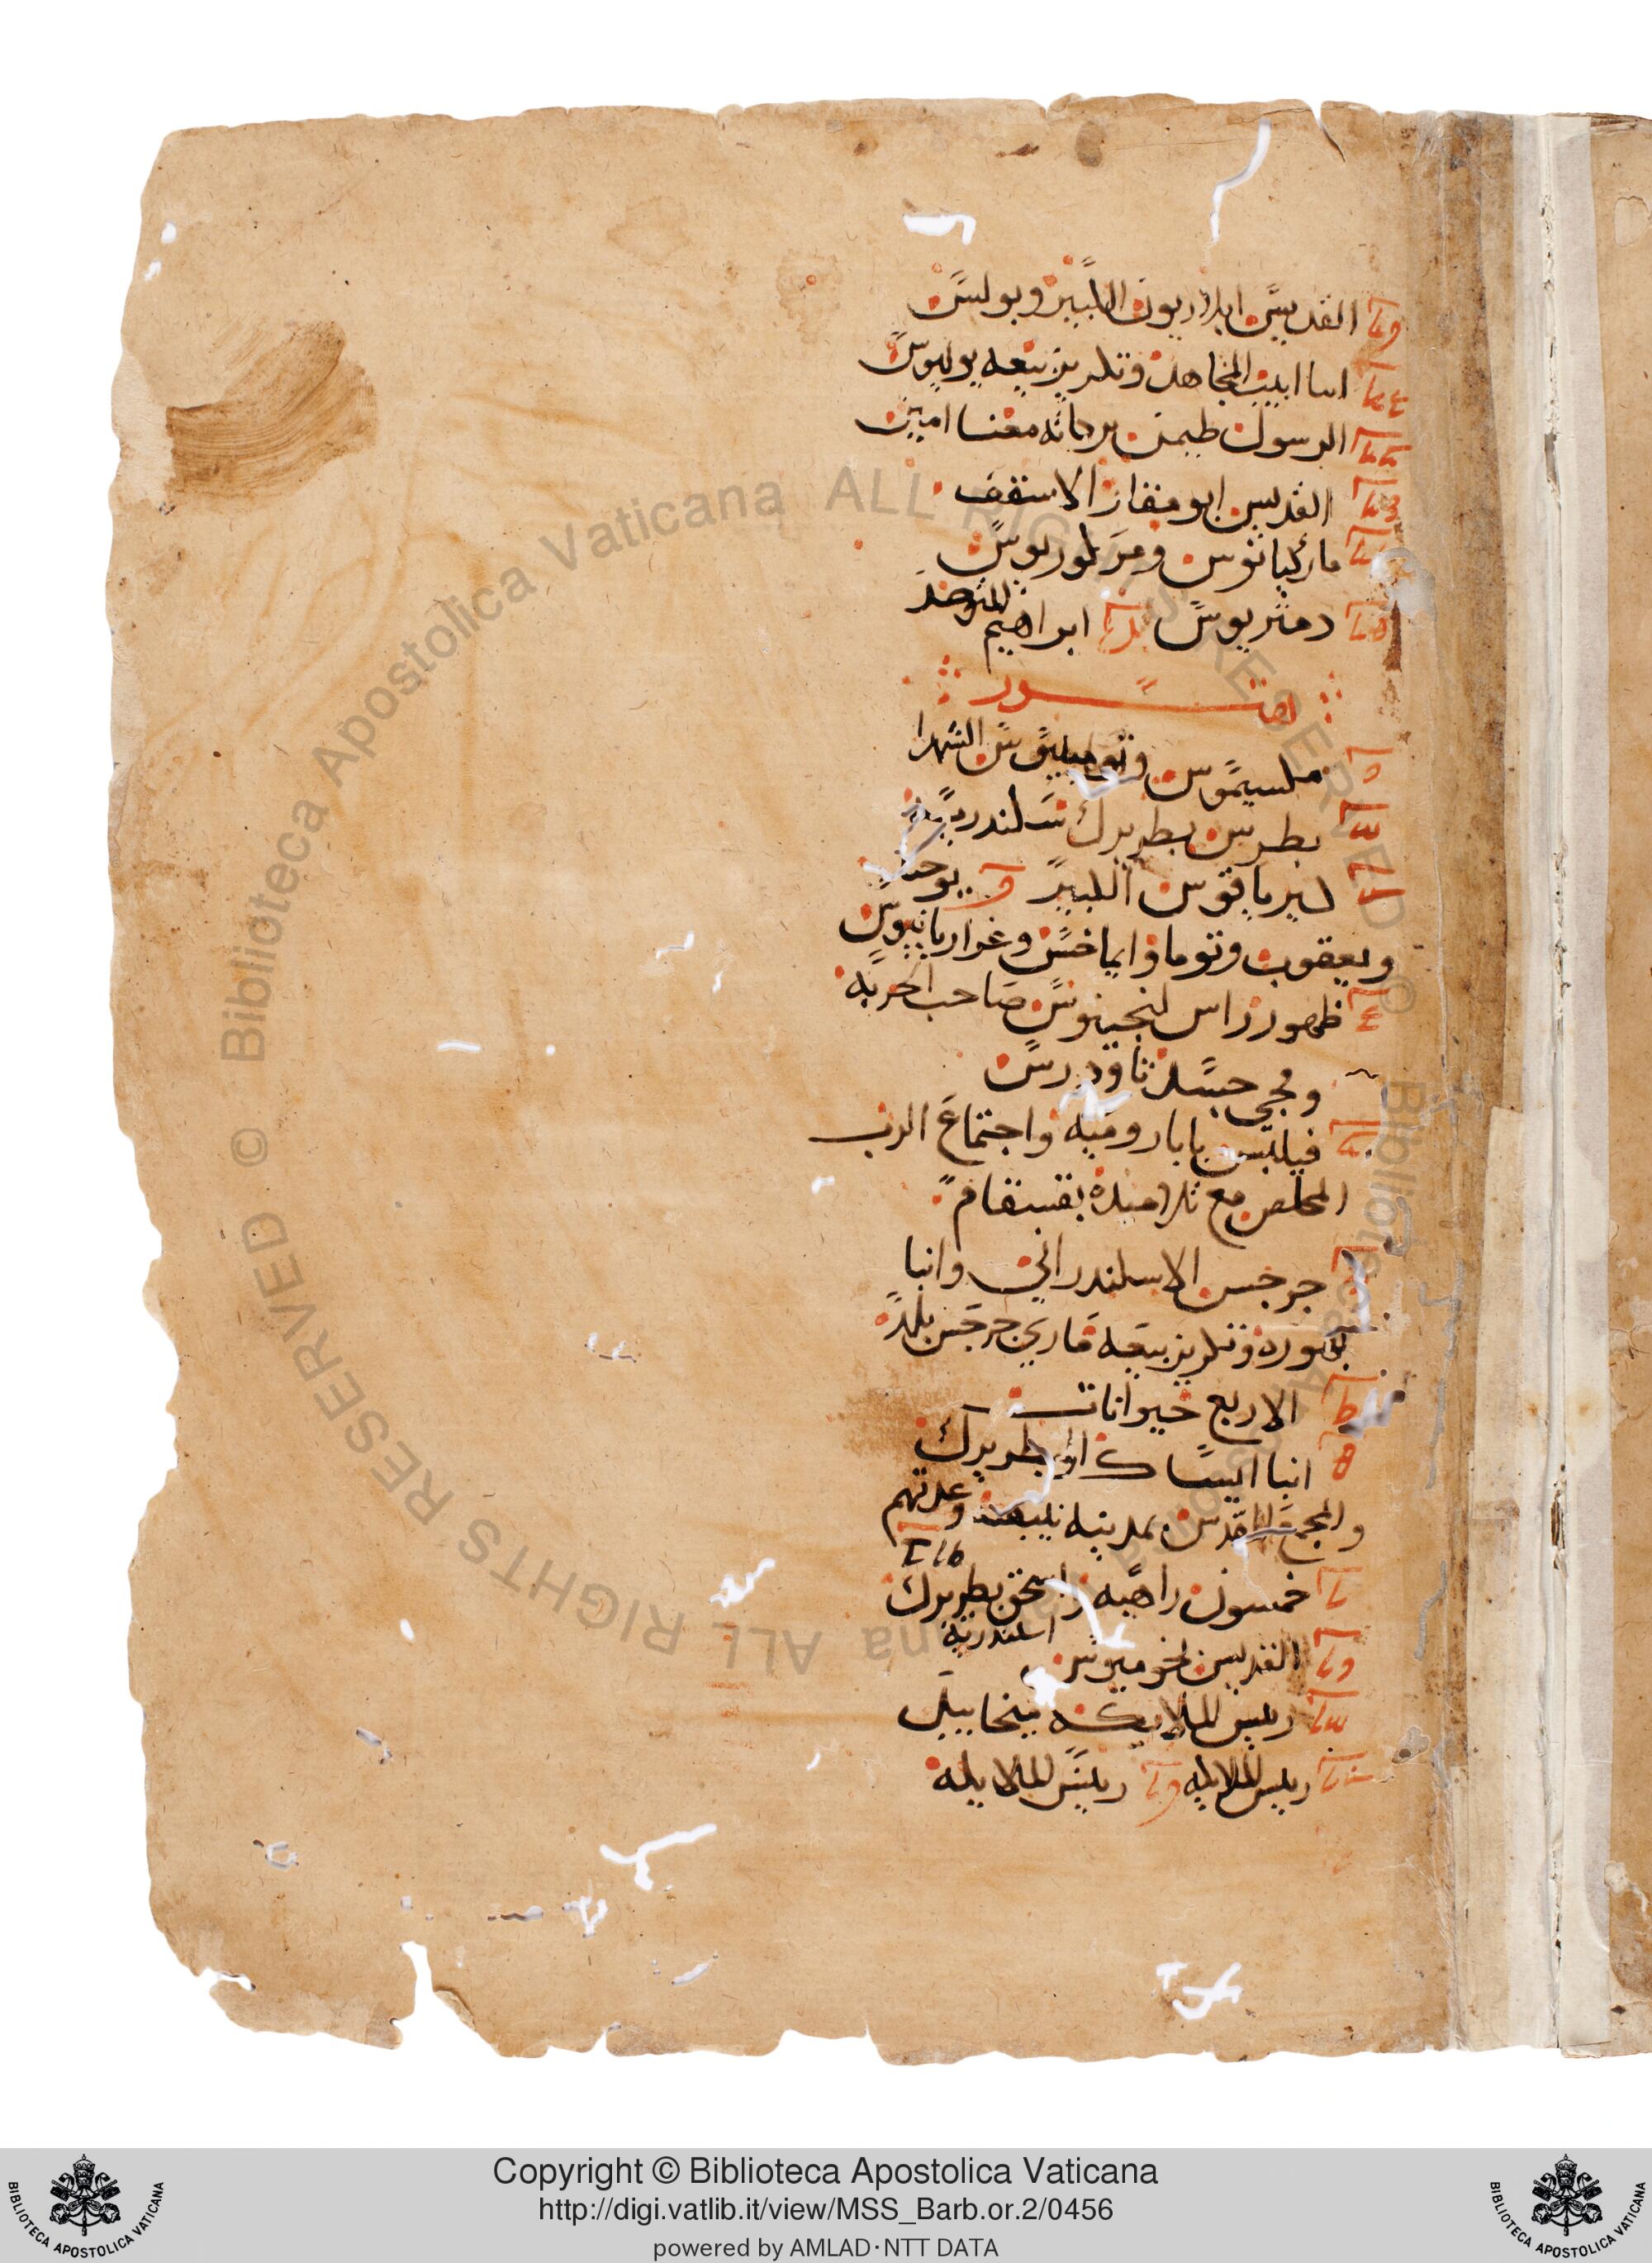 القديس ايلاريون الكبير وبولس
ابيب المجاهد وتكريز بيعه يوليوس
الرسول طيمن بركاته معنا امين
القديس ابو مقار الاسقف
ماركيانوس ومركوريوس
دمتريوس ابراهيم المتوحد
هتور
مكسيموس الشهدا
بطرس بطريرك سكندريه
كيرياقوس الكبير يوحنا
ويعقوب وتوما
ظهور راس لنجينوس صاحب الحربه
ومجي جسد تاودرس
فيلكس بابا روميه واجتماع الرب
المخلص مع تلاميذه بقسقام
جرجس الاسكندراني وانبا
وتكريز بيعه ماري جرجس بلد
الاربع حيوانات
انبا ايساك البطريرك
والمجمع المقدس بمدينه نيقيه وعدتهم
خمسون راهبه واسحق بطريرك
اسكندريه
القديس
رييس الملايكه ميخاييل
رييس الملايكه رييس الملايكه
Copyright © Biblioteca Apostolica Vaticana
http://digi.vatlib.it/view/MSS_Barb.or.2/0456
powered by AMLAD·NTT DATA
BIBLIOTECA APOSTOLICA VATICANA
BIBLIOTECA APOSTOLICA VATICANA
© Biblioteca Apostolica Vaticana ALL RIGHTS RESERVED